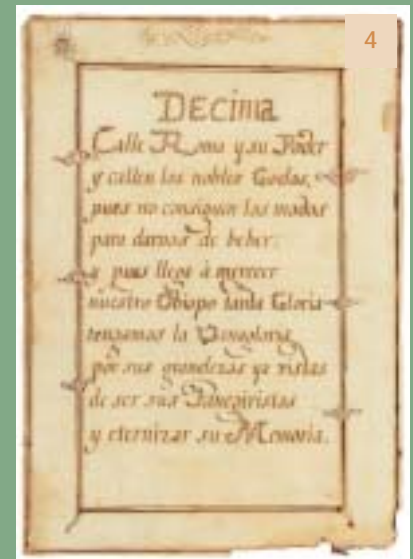 4
DECIMA
Calle Roma y su Poder
y callen los nobles Godos,
pues no consiguen los modos
para darnos de beber.
y pues llegó á merecer
nuestro Obispo tanta Gloria
tengamos la Vanagloria
por sus grandezas ya vistas
de ser sus Panegiristas
y eternizar su Memoria.